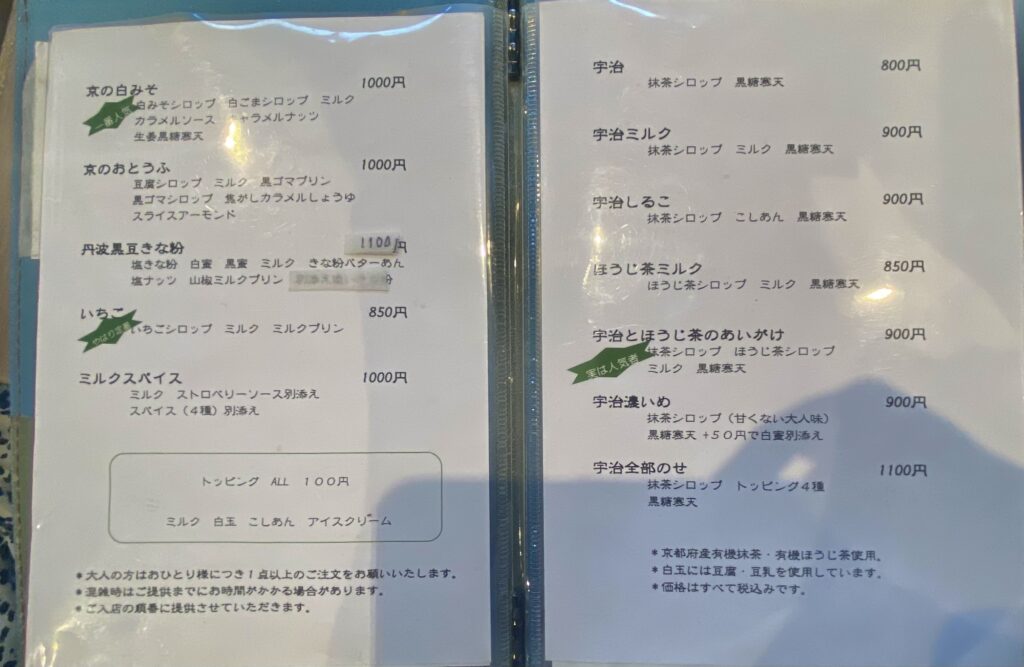 京の白みそ 1000円
白みそシロップ 白ごまシロップ ミルク
一番人気
カラメルソース キャラメルナッツ
生姜黒糖寒天
京のおとうふ 1000円
豆腐シロップ ミルク 黒ゴマプリン
黒ゴマシロップ 焦がしカラメルしょうゆ
スライスアーモンド
丹波黒豆きな粉 1100円
塩きな粉 白蜜 黒蜜 ミルク きな粉バターあん
塩ナッツ 山椒ミルクプリン 粉
いちご 850円
やはり定番
いちごシロップ ミルク ミルクプリン
ミルクスパイス 1000円
ミルク ストロベリーソース別添え
スパイス（４種）別添え
トッピング ALL １００円
ミルク 白玉 こしあん アイスクリーム
＊大人の方はおひとり様につき１点以上のご注文をお願いいたします。
＊混雑時はご提供までにお時間がかかる場合があります。
＊ご入店の順番に提供させていただきます。
宇治 800円
抹茶シロップ 黒糖寒天
宇治ミルク 900円
抹茶シロップ ミルク 黒糖寒天
宇治しるこ 900円
抹茶シロップ こしあん 黒糖寒天
ほうじ茶ミルク 850円
ほうじ茶シロップ ミルク 黒糖寒天
宇治とほうじ茶のあいがけ 900円
抹茶シロップ ほうじ茶シロップ
実は人気者
ミルク 黒糖寒天
宇治濃いめ 900円
抹茶シロップ（甘くない大人味）
黒糖寒天 +５０円で白蜜別添え
宇治全部のせ 1100円
抹茶シロップ トッピング４種
黒糖寒天
＊京都府産有機抹茶・有機ほうじ茶使用。
＊白玉には豆腐・豆乳を使用しています。
＊価格はすべて税込みです。